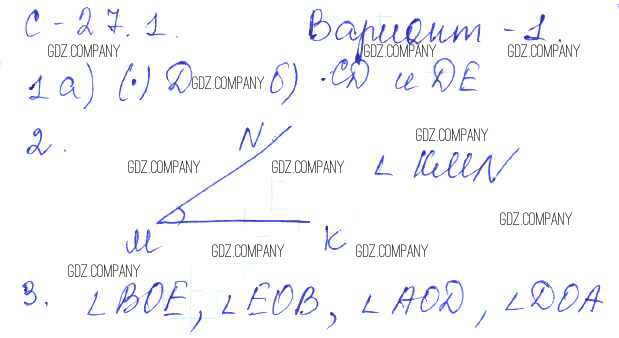 С-27.1. Вариант-1.
GDZ.COMPANY GDZ.COMPANY GDZ.COMPANY
1а) (·) D б) ·CD и DE
GDZ.COMPANY GDZ.COMPANY
2. N ∠ KMN
GDZ.COMPANY
GDZ.COMPANY GDZ.COMPANY
GDZ.COMPANY
M K
GDZ.COMPANY GDZ.COMPANY
GDZ.COMPANY
3. ∠BOE, ∠EOB, ∠AOD, ∠DOA